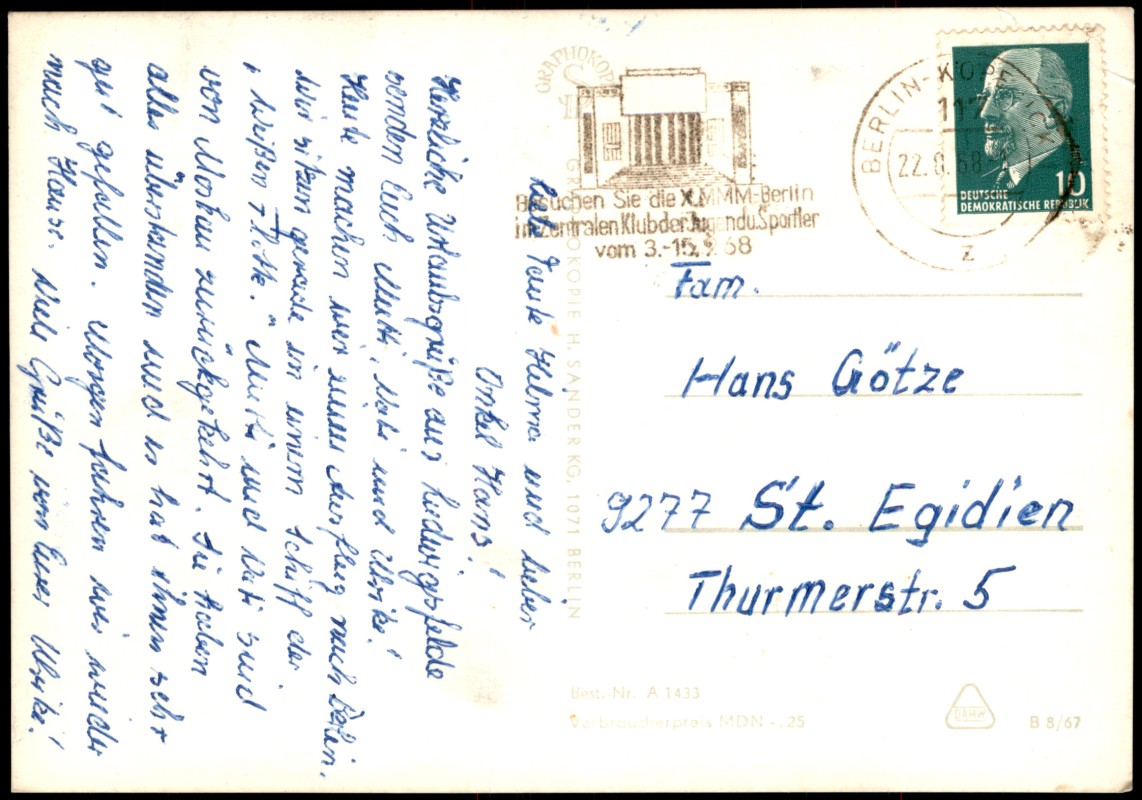 Liebe Tante Helma und lieber
Onkel Hans!
Herzliche Urlaubsgrüße aus Ludwigsfelde
senden Euch Mutti, Vati und Ulrike!
Heute machen wir einen Ausflug nach Berlin.
Wir sitzen gerade in einem Schiff der
"Weißen Flotte." Mutti und Vati sind
von zurückgekehrt. Sie haben
alles überstanden und es hat ihnen sehr
gut gefallen. Morgen fahren wir wieder
nach Hause. Viele Grüße von Eurer Ulrike!
GRAPHOKOPIE H. SANDER KG, 1071 BERLIN
Besuchen Sie die X.MMM-Berlin
im Zentralen Klub der Jugend u. Sportler
vom 3.-15.9.68
BERLIN-KÖPENICK
117
22.8.68
z
10
DEUTSCHE
DEMOKRATISCHE REPUBLIK
Fam.
Hans Götze
9277 St. Egidien
Thurmerstr. 5
Best.-Nr. A 1433
Verbraucherpreis MDN -.25
DAHW
B 8/67